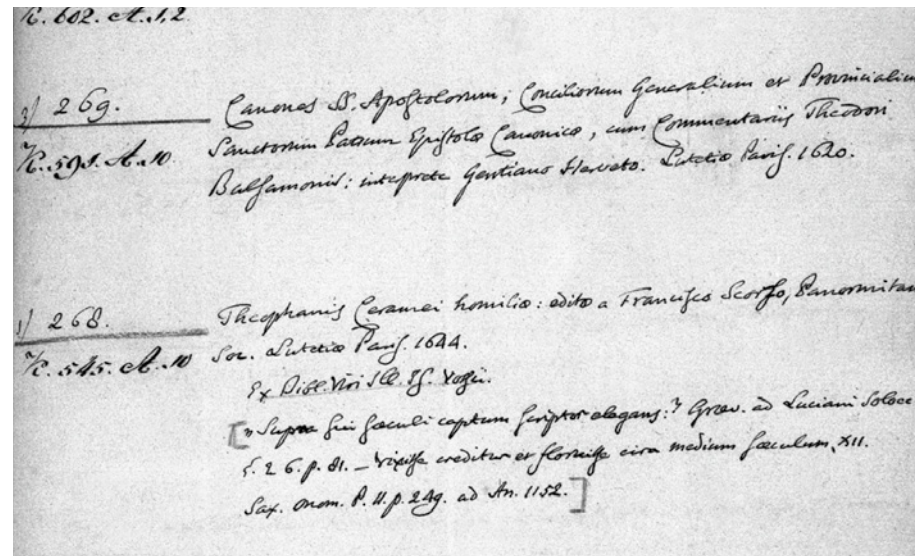 K. 602. A. 1, 2.
2) 269.
Canones SS. Apostolorum; Conciliorum Generalium et Provincialium
Sanctorum Patrum Epistolæ Canonicæ, cum Commentariis Theodori
K. 591. A. 10.
Balsamonis: interprete Gentiano Herveto. Lutetiæ Paris. 1620.
1) 268.
Theophanis Ceramei homiliæ: editæ a Francisco Scorso, Panormitan
Soc. Lutetiæ Paris. 1644.
K. 545. A. 10
Ex Bibl. Viri Ill. Is. Vossii.
["Supra sui sæculi captum scriptor elegans:" Græv. ad Luciani Soloec
p. 81. – vixisse creditur et floruisse circa medium sæculum XII.
Sax. Onom. P. II. p. 249. ad An. 1152.]